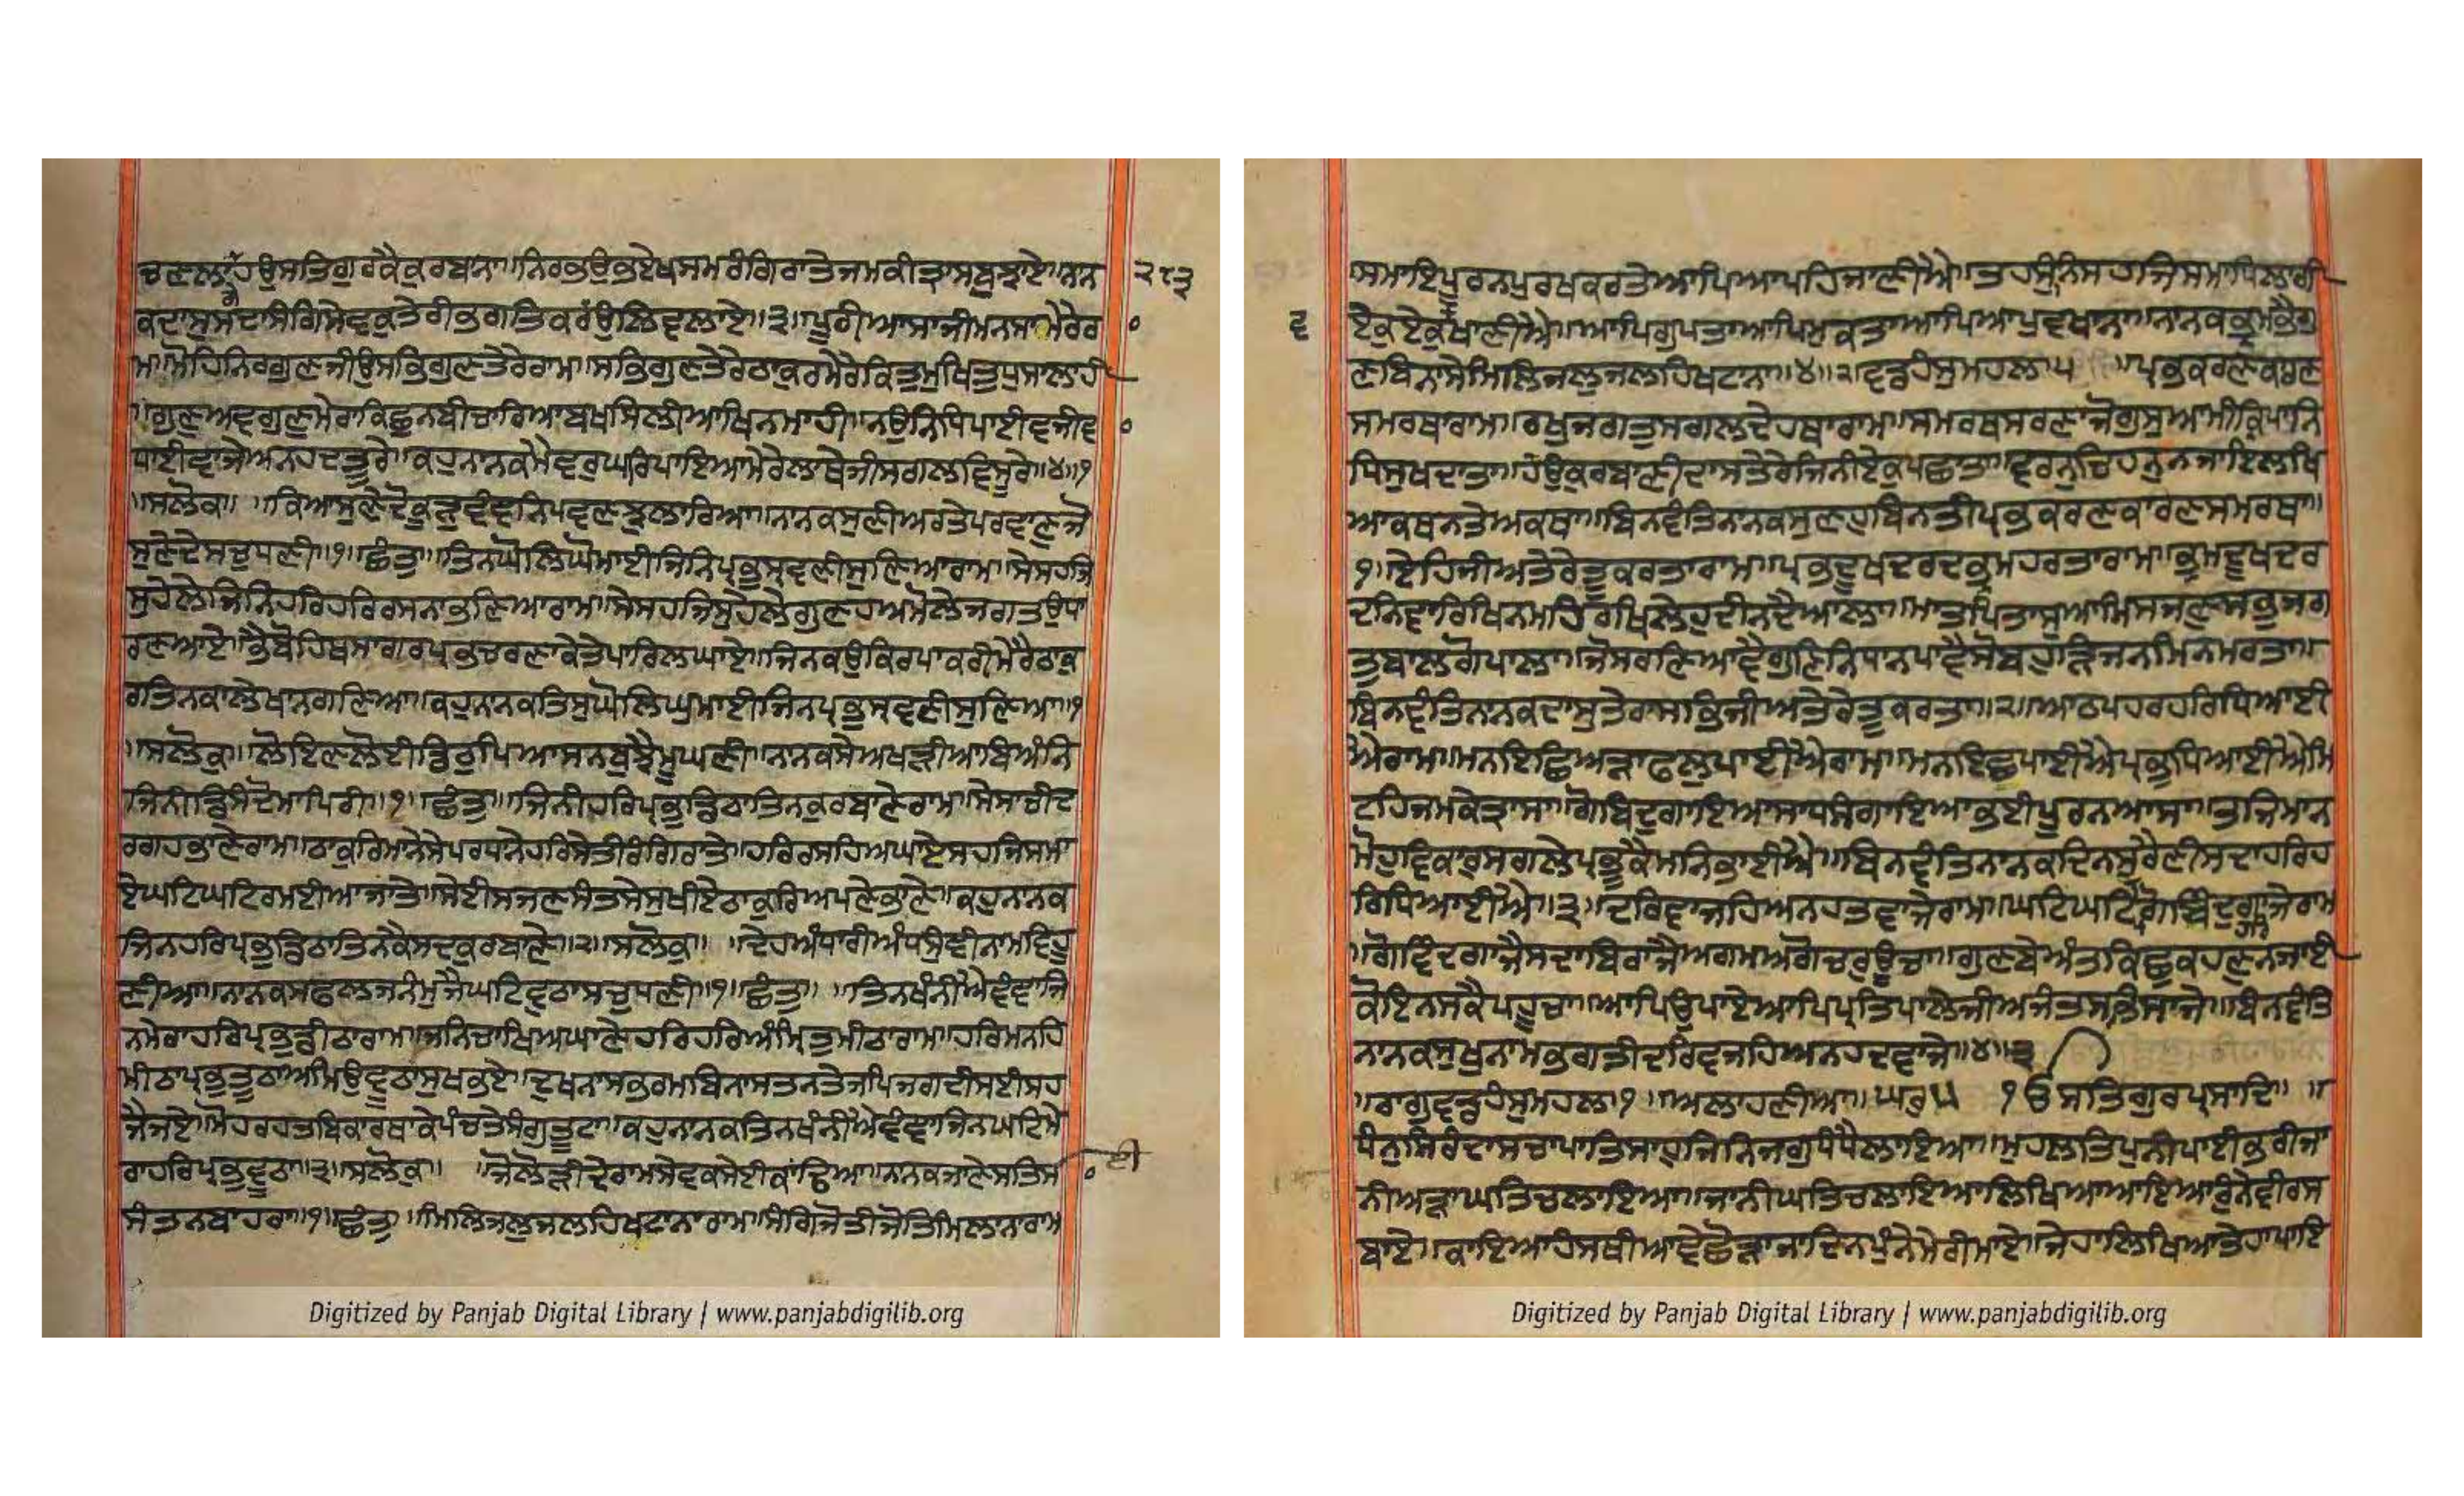 ਚਣਲਾਹਉਸਤਿਗੁਰਕੈਕੁਰਬਾਨਾ॥ਨਿਰਭਉਭਏਖਸਮਰੰਗਿਰਾਤੇਜਮਕੀਤ੍ਰਾਸਬੁਝਾਏ॥ਨਾਨ
੨੮੩
ਕਦਾਸੁਸਦਾਸੰਗਿਸੇਵਕੁਤੇਰੀਭਗਤਿਕਰੰਉਲਿਵਲਾਏ॥੩॥ਪੂਰੀਆਸਾਜੀਮਨਸਾਮੇਰੇਰ
ਮਮੋਹਿਨਿਰਗੁਣਜੀਉਸਭਿਗੁਣਤੇਰੇਰਾਮ॥ਸਭਿਗੁਣਤੇਰੇਠਾਕੁਰਮੇਰੇਕਿਤੁਮੁਖਿਤੁਧੁਸਾਲਾਹੀ
॥ਗੁਣੁਅਵਗੁਣੁਮੇਰਾਕਿਛੁਨਬੀਚਾਰਿਆਬਖਸਿਲੀਆਖਿਨਮਾਹੀ॥ਨਉਨਿਧਿਪਾਈਵਜੀਵ
ਧਾਈਵਾਜੇਅਨਹਦਤੂਰੇ॥ਕਹੁਨਾਨਕਮੈਵਰੁਘਰਿਪਾਇਆਮੇਰੇਲਾਥੇਜੀਸਗਲਵਿਸੂਰੇ॥੪॥੧
॥ਸਲੋਕੁ॥ ॥ਕਿਆਸੁਣੇਦੋਕੂੜੁਵੰਞਨਿਪਵਣਝੁਲਾਰਿਆ॥ਨਾਨਕਸੁਣੀਅਰਤੇਪਰਵਾਣੁਜੋ
ਸੁਣੇਦੇਸਚੁਧਣੀ॥੧॥ਛੰਤੁ॥ਤਿਨਘੋਲਿਘੁਮਾਈਜਿਨਿਪ੍ਰਭੁਸ੍ਰਵਣੀਸੁਣਿਆਰਾਮ॥ਸੇਸਹਜਿ
ਸੁਹੇਲੇਜਿਨਿਹਰਿਹਰਿਰਸਨਾਭਣਿਆਰਾਮ॥ਸੇਸਹਜਿਸੁਹੇਲੇਗੁਣਹਅਮੋਲੇਜਗਤਉਧਾ
ਰਣਆਏ॥ਭੈਬੋਹਿਥਸਾਗਰਪ੍ਰਭਚਰਣਾਕੇਤੇਪਾਰਿਲਘਾਏ॥ਜਿਨਕਉਕਿਰਪਾਕਰੀਮੇਰੈਠਾਕੁ
ਰਤਿਨਕਾਲੇਖਾਨਗਣਿਆ॥ਕਹੁਨਾਨਕਤਿਸੁਘੋਲਿਘੁਮਾਈਜਿਨਪ੍ਰਭੁਸ੍ਰਵਣੀਸੁਣਿਆ॥੧
॥ਸਲੋਕੁ॥ਲੋਇਣਲੋਈਡਿਠੁਪਿਆਸਨਬੁਝੈਮੂਘਣੀ॥ਨਾਨਕਸੇਅਖੜੀਆਬਿਅੰਨਿ
ਜਿਨੀਡਿਸੰਦੋਮਾਪਿਰੀ॥੧॥ਛੰਤੁ॥ਜਿਨੀਹਰਿਪ੍ਰਭੁਡਿਠਾਤਿਨਕੁਰਬਾਣੇਰਾਮ॥ਸੇਸਾਚੀਦ
ਰਗਹਭਾਣੇਰਾਮ॥ਠਾਕੁਰਿਮਾਨੇਸੇਪਰਧਾਨੇਹਰਿਸੇਤੀਰੰਗਿਰਾਤੇ॥ਹਰਿਰਸਹਿਅਘਾਏਸਹਜਿਸਮਾ
ਏਘਟਿਘਟਿਰਮਈਆਜਾਤੇ॥ਸੇਈਸਜਣਸੰਤਸੇਸੁਖੀਏਠਾਕੁਰਿਅਪਣੇਭਾਣੇ॥ਕਹੁਨਾਨਕ
ਜਿਨਹਰਿਪ੍ਰਭੁਡਿਠਾਤਿਨਕੈਸਦਕੁਰਬਾਣੇ॥੨॥ਸਲੋਕੁ॥ ॥ਦੇਹਅੰਧਾਰੀਅੰਧਸੁੰਞੀਨਾਮਵਿਹੂ
ਣੀਆ॥ਨਾਨਕਸਫਲਜਨੰਮੁਜੈਘਟਿਵੁਠਾਸਚੁਧਣੀ॥੧॥ਛੰਤੁ॥ ॥ਤਿਨਖੰਨੀਐਵੰਞਾਜਿ
ਨਮੇਰਾਹਰਿਪ੍ਰਭੁਡੀਠਾਰਾਮ॥ਜਨਿਚਾਖਿਅਘਾਣੇਹਰਿਹਰਿਅੰਮ੍ਰਿਤੁਮੀਠਾਰਾਮ॥ਹਰਿਮਨਹਿ
ਮੀਠਾਪ੍ਰਭੁਤੂਠਾਅਮਿਉਵੂਠਾਸੁਖਭਏ॥ਦੁਖਨਾਸਭਰਮਬਿਨਾਸਤਨਤੇਜਪਿਜਗਦੀਸਈਸਹ
ਜੈਜਏ॥ਮੋਹਰਹਤਬਿਕਾਰਥਾਕੇਪੰਚਤੇਸੰਗੁਤੂਟਾ॥ਕਹੁਨਾਨਕਤਿਨਖੰਨੀਐਵੰਞਾਜਿਨਘਟਿਮੇ
ਰਾਹਰਿਪ੍ਰਭੁਵੂਠਾ॥੩॥ਸਲੋਕੁ॥ ॥ਜੋਲੋੜੀਦੇਰਾਮਸੇਵਕਸੇਈਕਾਂਢਿਆ॥ਨਾਨਕਜਾਣੇਸਤਿਸਾ
ਸੰਤਨਬਾਹਰਾ॥੧॥ਛੰਤੁ॥ਮਿਲਿਜਲੁਜਲਹਿਖਟਾਨਾਰਾਮ॥ਸੰਗਿਜੋਤੀਜੋਤਿਮਿਲਾਨਾਰਾਮ
Digitized by Panjab Digital Library | www.panjabdigilib.org
ਸਮਾਇਪੂਰਨਪੁਰਖਕਰਤੇਆਪਿਆਪਹਿਜਾਣੀਐ॥ਤਹਸੁੰਨਿਸਹਜਿਸਮਾਧਿਲਾਗੀ
ਏਕੁਏਕੁਵਖਾਣੀਐ॥ਆਪਿਗੁਪਤਾਆਪਿਮੁਕਤਾਆਪਿਆਪੁਵਖਾਨਾ॥ਨਾਨਕਭ੍ਰਮਭੈਗੁ
ਣਬਿਨਾਸੇਮਿਲਿਜਲੁਜਲਹਿਖਟਾਨਾ॥੪॥੨॥ਵਡਹੰਸੁਮਹਲਾ੫ ॥ਪ੍ਰਭਕਰਣਕਾਰਣ
ਸਮਰਥਾਰਾਮ॥ਰਖੁਜਗਤੁਸਗਲਦੇਹਥਾਰਾਮ॥ਸਮਰਥਸਰਣਾਜੋਗੁਸੁਆਮੀਕ੍ਰਿਪਾਨਿ
ਧਿਸੁਖਦਾਤਾ॥ਹੰਉਕੁਰਬਾਣੀਦਾਸਤੇਰੇਜਿਨੀਏਕੁਪਛਾਤਾ॥ਵਰਨੁਚਿਹਨੁਨਜਾਇਲਖਿ
ਆਕਥਨਤੇਅਕਥਾ॥ਬਿਨਵੰਤਿਨਾਨਕਸੁਣਹੁਬਿਨਤੀਪ੍ਰਭਕਰਣਕਾਰਣਸਮਰਥਾ॥
੧॥ਏਹਿਜੀਅਤੇਰੇਤੂਕਰਤਾਰਾਮ॥ਪ੍ਰਭਦੂਖਦਰਦਭ੍ਰਮਹਰਤਾਰਾਮ॥ਭ੍ਰਮਦੂਖਦਰ
ਦਨਿਵਾਰਿਖਿਨਮਹਿਰਖਿਲੇਹੁਦੀਨਦੈਆਲਾ॥ਮਾਤਪਿਤਾਸੁਆਮਿਸਜਣੁਸਭੁਜਗ
ਤੁਬਾਲਗੋਪਾਲਾ॥ਜੋਸਰਣਿਆਵੈਗੁਣਿਨਿਧਾਨਪਾਵੈਸੋਬਹੁੜਿਜਨਮਿਨਮਰਤਾ॥
ਬਿਨਵੰਤਿਨਾਨਕਦਾਸੁਤੇਰਾਸਭਿਜੀਅਤੇਰੇਤੂਕਰਤਾ॥੨॥ਆਠਪਹਰਹਰਿਧਿਆਈ
ਐਰਾਮ॥ਮਨਇਛਿਅੜਾਫਲੁਪਾਈਐਰਾਮ॥ਮਨਇਛਪਾਈਐਪ੍ਰਭੁਧਿਆਈਐਮਿ
ਟਹਿਜਮਕੇਤ੍ਰਾਸਾ॥ਗੋਬਿਦੁਗਾਇਆਸਾਧਸੰਗਾਇਆਭਈਪੂਰਨਆਸਾ॥ਤਜਿਮਾਨ
ਮੋਹੁਵਿਕਾਰਸਗਲੇਪ੍ਰਭੂਕੈਮਨਿਭਾਈਐ॥ਬਿਨਵੰਤਿਨਾਨਕਦਿਨਸੁਰੈਣੀਸਦਾਹਰਿਹ
ਰਿਧਿਆਈਐ॥੩॥ਦਰਿਵਾਜਹਿਅਨਹਤਵਾਜੇਰਾਮ॥ਘਟਿਘਟਿਹਰਿਗੋਬਿੰਦੁਗਾਜੇਰਾਮ
॥ਗੋਵਿਦਗਾਜੈਸਦਾਬਿਰਾਜੈਅਗਮਅਗੋਚਰੁਊਚਾ॥ਗੁਣਬੇਅੰਤਕਿਛੁਕਹਣੁਨਜਾਈ
ਕੋਇਨਸਕੈਪਹੂਚਾ॥ਆਪਿਉਪਾਏਆਪਿਪ੍ਰਤਿਪਾਲੇਜੀਅਜੰਤਸਭਿਸਾਜੇ॥ਬਿਨਵੰਤਿ
ਨਾਨਕਸੁਖੁਨਾਮਭਗਤੀਦਰਿਵਜਹਿਅਨਹਦਵਾਜੇ॥੪॥੩
॥ਰਾਗੁਵਡਹੰਸੁਮਹਲਾ੧॥ਅਲਾਹਣੀਆ॥ਘਰੁ੫ ੧ਓਸਤਿਗੁਰਪ੍ਰਸਾਦਿ॥ ॥
ਧੰਨੁਸਿਰੰਦਾਸਚਾਪਾਤਿਸਾਹੁਜਿਨਿਜਗੁਧੰਧੈਲਾਇਆ॥ਮੁਹਲਤਿਪੁਨੀਪਾਈਭਰੀਜਾ
ਨੀਅੜਾਘਤਿਚਲਾਇਆ॥ਜਾਨੀਘਤਿਚਲਾਇਆਲਿਖਿਆਆਇਆਰੁੰਨੇਵੀਰਸ
ਬਾਏ॥ਕਾਂਇਆਹੰਸਥੀਆਵੇਛੋੜਾਜਾਦਿਨਪੁੰਨੇਮੇਰੀਮਾਏ॥ਜੇਹਾਲਿਖਿਆਤੇਹਾਪਾਇ
Digitized by Panjab Digital Library | www.panjabdigilib.org